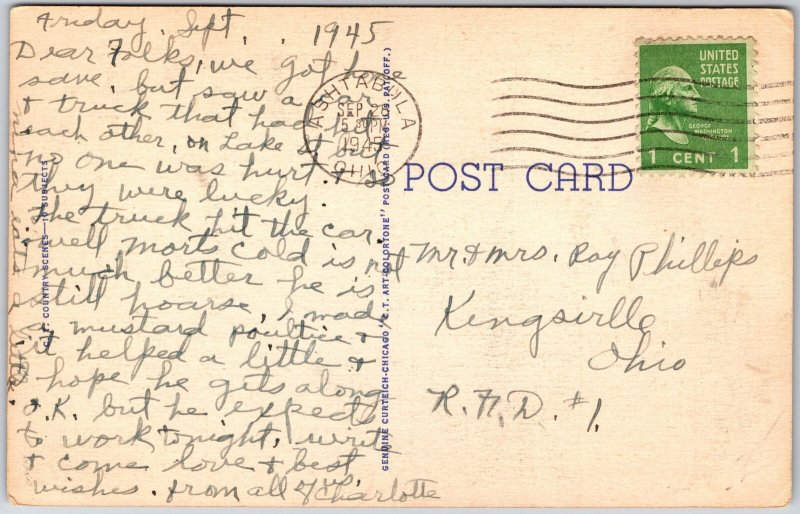 Friday, Sept., 1945
Dear Folks, we got here
save, but saw a car
& truck that had hit
each other, on Lake st but
no one was hurt & so
they were lucky.
The truck hit the car.
well Morts cold is not
much better he is
still hoarse, I made
a mustard poultice &
it helped a little &
hope he gets along
O.K. but he expects
to work tonight, write
& come love & best
wishes. from all of us.
Charlotte
C.T. COUNTRY SCENES—10 SUBJECTS
GENUINE CURTEICH-CHICAGO "C.T. ART-COLORTONE" POSTCARD (REG. U.S. PAT. OFF.)
ASHTABULA
SEP
5 PM
1945
OHIO
UNITED
STATES
POSTAGE
GEORGE
WASHINGTON
1 CENT 1
POST CARD
Mr. & Mrs. Roy Phillips
Kingsville
Ohio
R.F.D. #1.